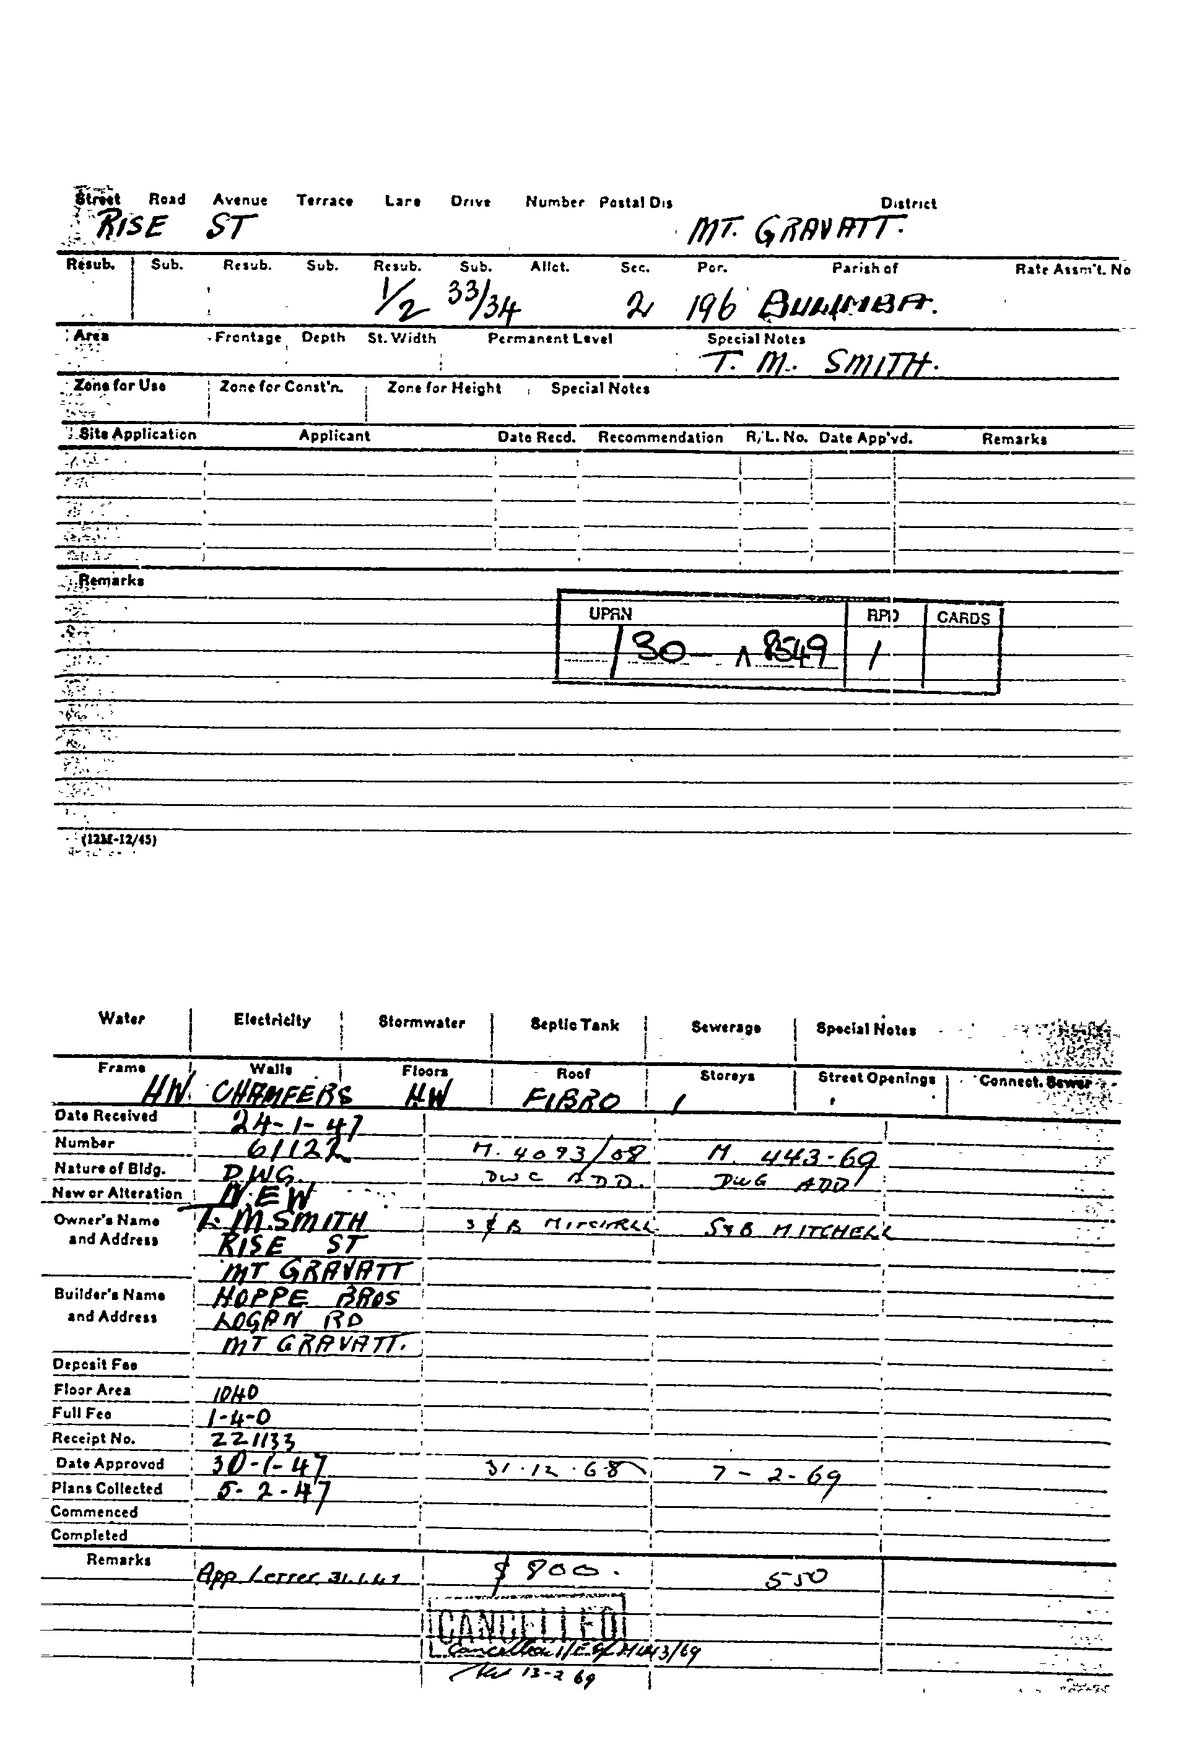 Street Road Avenue Terrace Lane Drive Number Postal Dis District
RISE ST MT. GRAVATT.
Resub. Sub. Resub. Sub. Resub. Sub. Allot. Sec. Por. Parish of Rate Assm't. No
1/2 33/34 2 196 BULIMBA.
Area Frontage Depth St. Width Permanent Level Special Notes
T. M. SMITH.
Zone for Use Zone for Const'n. Zone for Height Special Notes
Site Application Applicant Date Recd. Recommendation R/L. No. Date App'vd. Remarks
Remarks
UPRN RPD CARDS
130 - 8549 1
(12M-12/45)
Water Electricity Stormwater Septic Tank Sewerage Special Notes
Frame Walls Floors Roof Storeys Street Openings Connect. Sewer
HW. CHAMFERS HW FIBRO 1
Date Received 24-1-47
Number 61122 M. 4093/68 M. 443-69
Nature of Bldg. DWG. DWG ADD. DWG ADD
New or Alteration NEW
Owner's Name T. M. SMITH S & B MITCHELL S & B MITCHELL
and Address RISE ST
MT GRAVATT
Builder's Name HOPPE BROS
and Address LOGAN RD
MT GRAVATT.
Deposit Fee
Floor Area 1040
Full Fee 1-4-0
Receipt No. 221133
Date Approved 30-1-47 31.12.68 7-2-69
Plans Collected 5-2-47
Commenced
Completed
Remarks App Letter 31.1.47 $800. 550
CANCELLED
M443/69
13-2 69